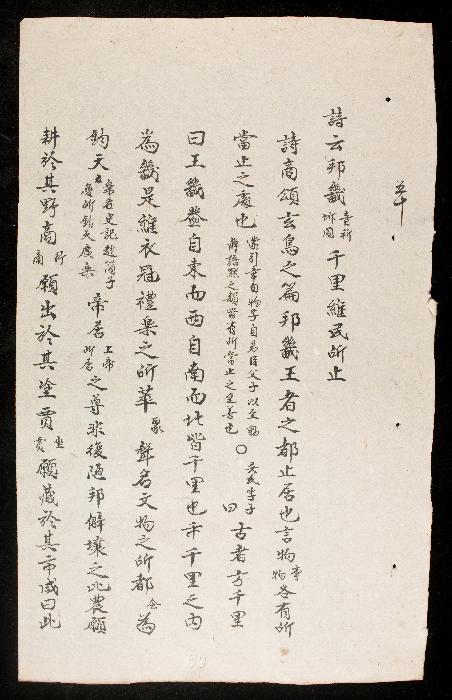 五十
詩云邦畿音祈坼同千里維民所止
詩商頌玄鳥之篇邦畿王者之都止居也言物事物各有所
當止之處也蒙引章句物字自君臣父子以至動靜語默之類皆有所當止之至善也〇吳氏季子曰古者方千里
曰王畿蓋自東而西自南而北皆千里也千里之內
為畿是維衣冠禮樂之所萃聚聲名文物之所都會為
鈞天樂名史記趙簡子夢所鈞天廣樂帝居上帝所居之尊非復陋邦僻壤之比農願
耕於其野商行商願出於其塗賈坐賈願藏於其市咸曰此